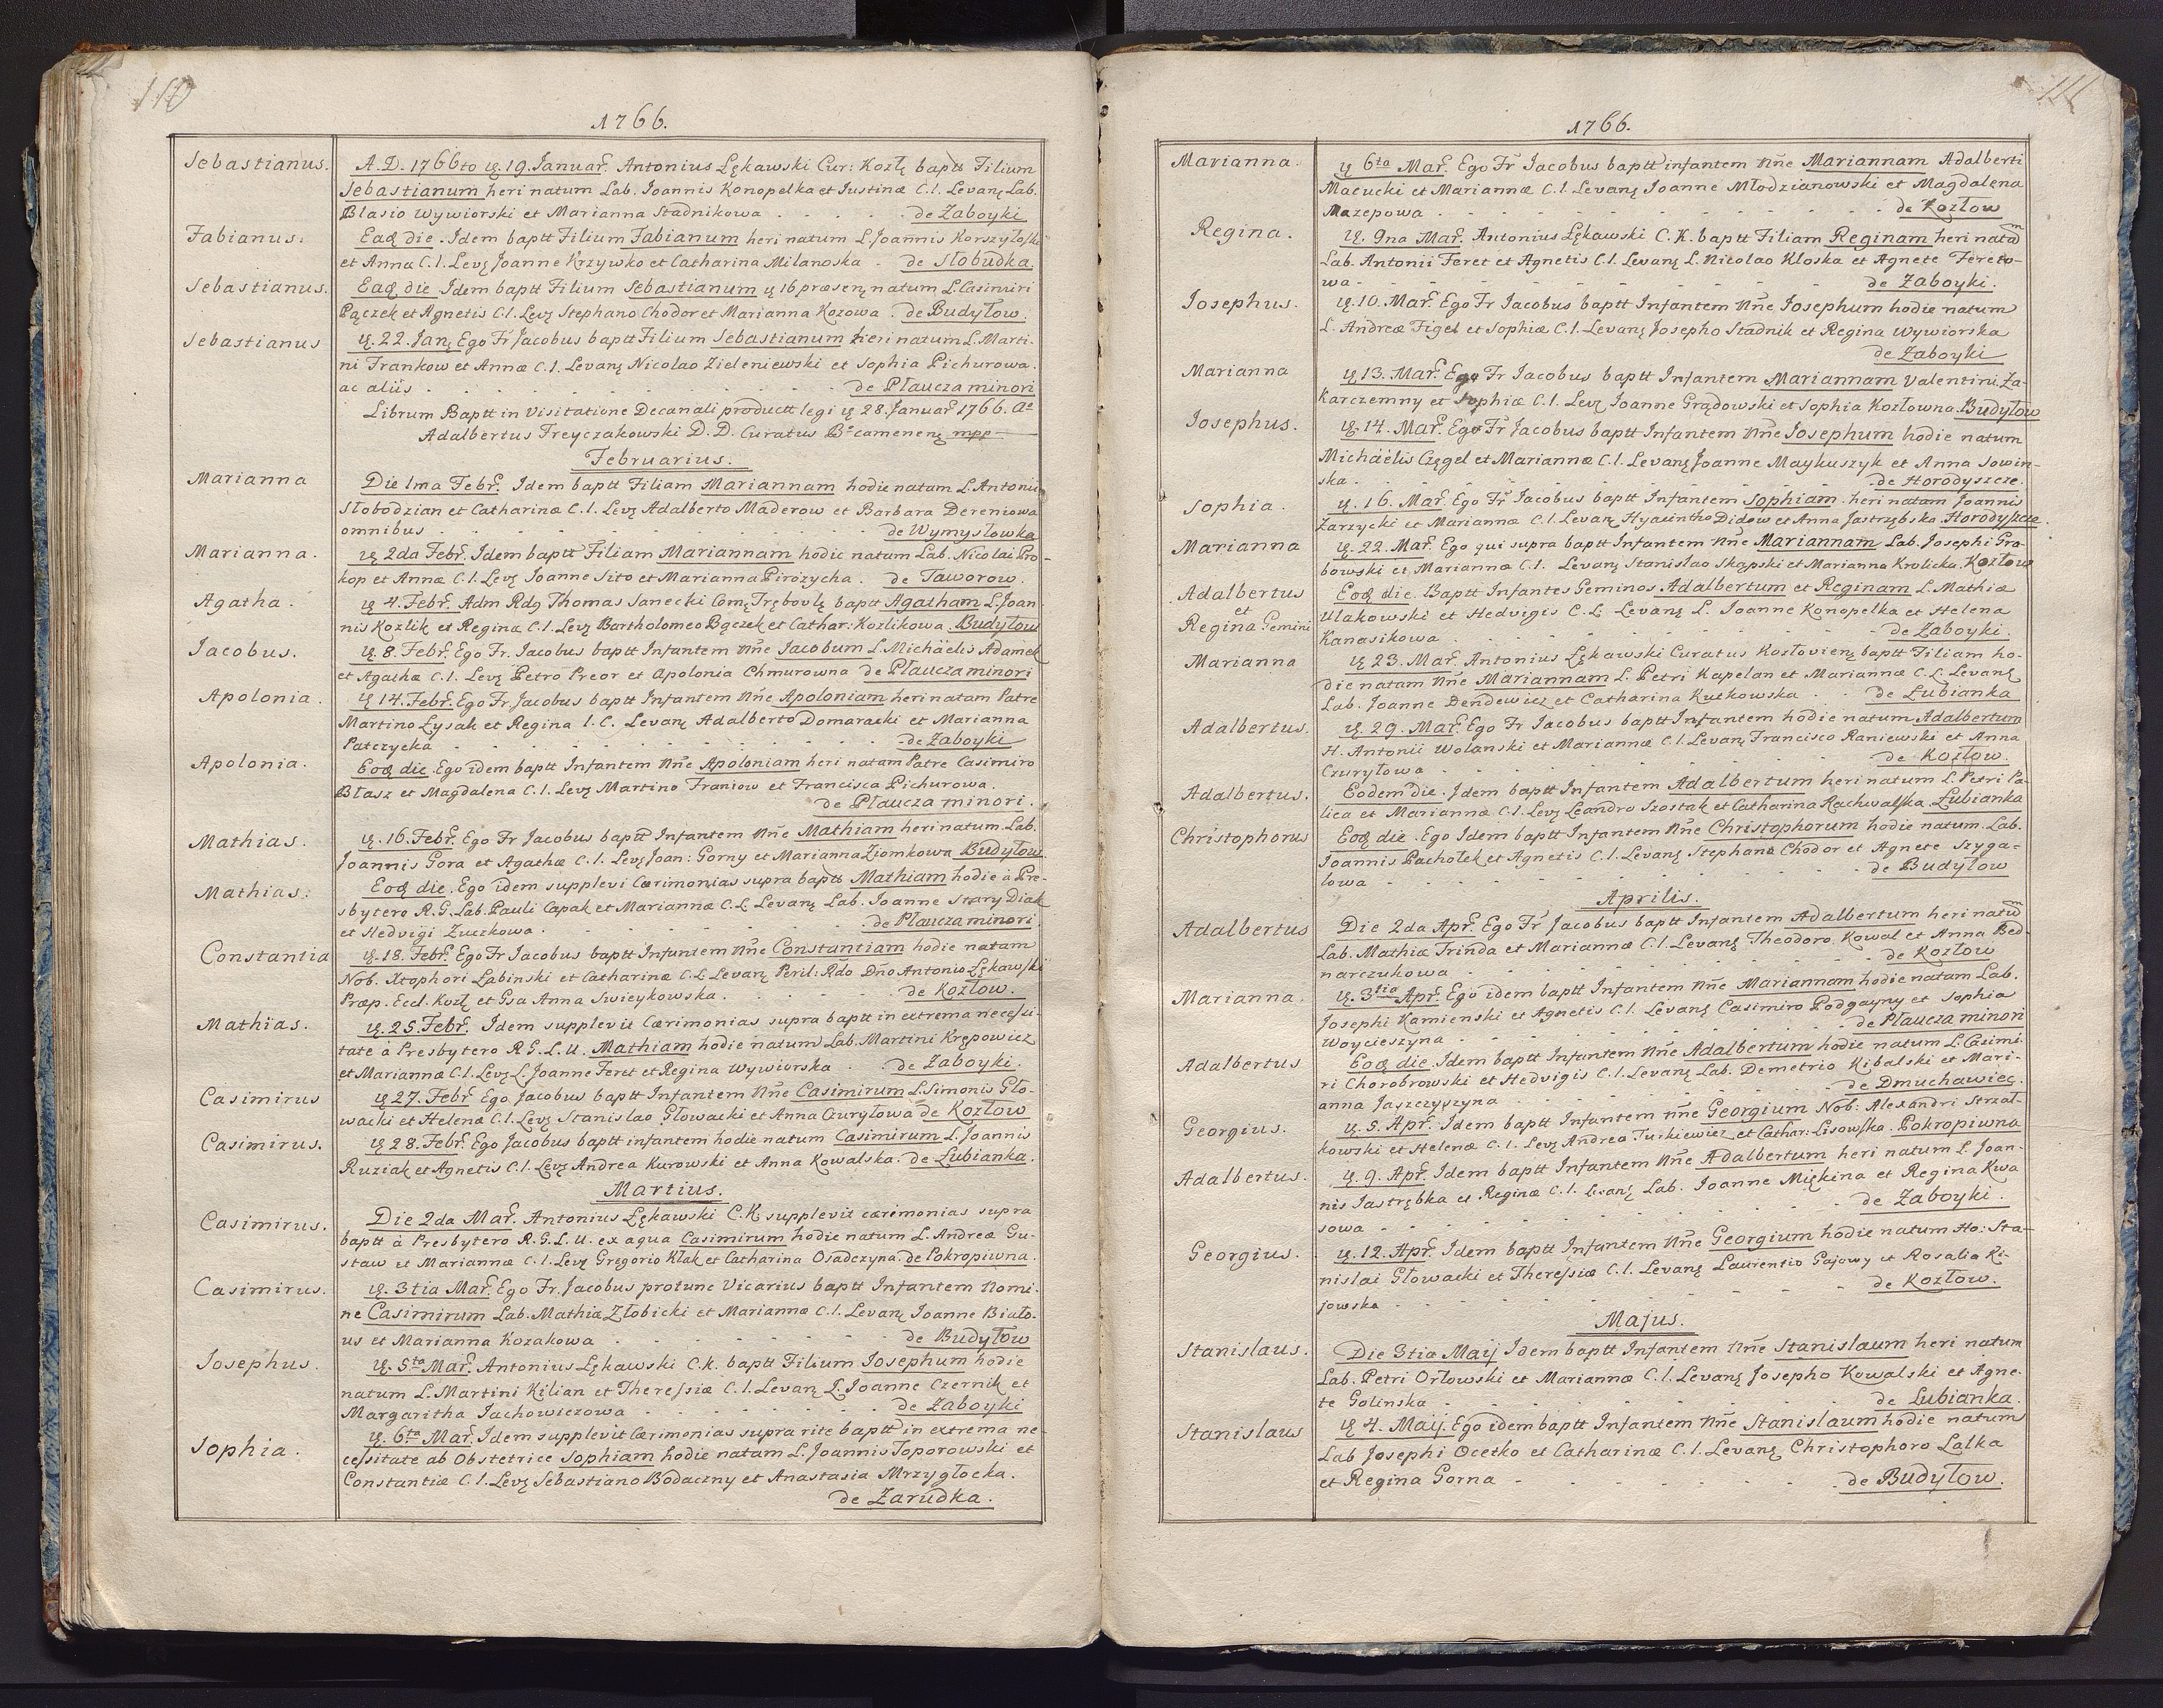 110
1766.
Sebastianus. A.D. 1766to 19. Januar. Antonius Łękawski Cur: Kozł baptt Filium
Sebastianum heri natum Lab. Joannis Konopelka et Justinæ C.l. Levanę Lab.
Blasio Wywiorski et Marianna Stadnikowa . . . . . de Zaboyki
Fabianus. Eaq die. Idem baptt Filium Fabianum heri natum L Joannis Korszyłoski
et Annæ C.l. Levę Joanne Krzywko et Catharina Milanoska . de Słobudka.
Sebastianus. Eaq die Idem baptt Filium Sebastianum 16 præsenę natum L. Casimiri
Pączek et Agnetis C.l. Levę Stephano Chodor et Marianna Kozowa . de Budyłow.
Sebastianus 22. Janę Ego Fr Jacobus baptt Filium Sebastianum heri natum L. Marti-
ni Frankow et Annæ C.l. Levanę Nicolao Zieleniewski et Sophia Pichurowa.
ac aliis . . . . . . . de Płaucza minori
Librum Baptt in Visitatione Decanali productt legi 28. Januar 1766. Ao
Adalbertus Freyczakowski D.D. Curatus Bo camenenę mpp
Februarius.
Marianna Die 1ma Febr. Idem baptt Filiam Mariannam hodie natam L. Antonii
Słobodzian et Catharinæ C.l. Levę Adalberto Maderow et Barbara Dereniowa
omnibus . . . . . . . de Wymysłowka
Marianna. 2da Febr. Idem baptt Filiam Mariannam hodie natam Lab. Nicolai Pro-
kop et Annæ C.l. Levę Joanne Sito et Marianna Pirożycha. de Taworow.
Agatha. 4. Febr. Adm Rdę Thomas Janecki Comę Trębovlę baptt Agatham L. Joan-
nis Kozlik et Reginæ C.l. Levę Bartholomeo Bączek et Cathar: Kozlikowa. Budyłow
Jacobus. 8. Febr. Ego Fr. Jacobus baptt Infantem Nne Jacobum L. Michäelis Adamek
et Agathæ C.l. Levę Petro Preor et Apolonia Chmurowna de Płaucza minori
Apolonia. 14. Febr. Ego Fr Jacobus baptt Infantem Nne Apoloniam heri natam Patre
Martino Łysak et Regina l.C. Levanę Adalberto Domaracki et Marianna
Patczycka . . . . . . . de Zaboyki
Apolonia. Eoq die. Ego idem baptt Infantem Nne Apoloniam heri natam Patre Casimiro
Błasz et Magdalena C.l. Levę Martino Franiow et Francisca Pichurowa.
de Płaucza minori.
Mathias. 16. Febr. Ego Fr Jacobus baptt Infantem Nne Mathiam heri natum Lab.
Joannis Gora et Agathæ C.l. Levę Joan: Gorny et Marianna Ziomkowa Budyłow.
Mathias. Eoq die. Ego idem supplevi Cærimonias supra baptt Mathiam hodie à Pre-
sbytero R.G. Lab. Pauli Capak et Mariannæ C.L Levanę Lab. Joanne Stary Diak
et Hedvigi Zuczkowa. . . . . . de Płaucza minori.
Constantia 18. Febr. Ego Fr Jacobus baptt Infantem Nne Constantiam hodie natam
Nob. Xtophori Łabinski et Catharinæ C.L Levanę Peril: Rdo Dno Antonio Łękawski
Præp. Eccl. Kozł et Gsa Anna Swieykowska. . . . . de Kozłow.
Mathias. 25. Febr. Idem supplevit Cærimonias supra baptt in extrema necessi-
tate à Presbytero R.G.L.U. Mathiam hodie natum Lab. Martini Krępowicz
et Mariannæ C.l. Levę L. Joanne Feret et Regina Wywiorska . de Zaboyki.
Casimirus 27. Febr Ego Jacobus baptt Infantem Nne Casimirum L. Simonis Gło-
wacki et Helenæ C.l. Levę Stanislao Głowacki et Anna Czuryłowa de Kozłow
Casimirus. 28. Febr. Ego Jacobus baptt infantem hodie natum Casimirum L. Joannis
Ruziak et Agnetis C.l. Levę Andrea Kurowski et Anna Kowalska. de Łubianka.
Martius.
Casimirus. Die 2da Mar. Antonius Łękawski C.K. supplevit cærimonias supra
baptt à Presbytero R.G.L.U. ex aqua Casimirum hodie natum L. Andreæ Gu-
staw et Mariannæ C.l. Levę Gregorio Kłak et Catharina Osadczyna. de Pokropiwna.
Casimirus. 3tia Mar. Ego Fr. Jacobus protunc Vicarius baptt Infantem Nomi-
ne Casimirum Lab. Mathia Złobicki et Mariannæ C.l. Levanę Joanne Biało-
us et Marianna Kozakowa . . . . . . de Budyłow
Josephus. 5ta Mar. Antonius Łękawski C.K. baptt Filium Josephum hodie
natum L. Martini Kilian et Theressiæ C.l. Levanę L. Joanne Czernik et
Margaritha Jachowiczowa . . . . . . de Zaboyki
Sophia. 6ta Mar. Idem supplevit Cærimonias supra rite baptt in extrema ne-
cessitate ab Obstetrice Sophiam hodie natam L. Joannis Toporowski et
Constantiæ C.l. Levę Sebastiano Bodaczny et Anastasia Mrzygłocka.
de Zarudka.
111
1766.
Marianna. 6ta Mar. Ego Fr Jacobus baptt infantem Nne Mariannam Adalberti
Macucki et Mariannæ C.l. Levanę Joanne Młodzianowski et Magdalena
Mazepowa . . . . . . . de Kozłow
Regina. 9na Mar. Antonius Łękawski C.K. baptt Filiam Reginam heri natam
Lab. Antonii Feret et Agnetis C.l. Levanę L. Nicolao Kloska et Agnete Fereto-
wa . . . . . . . de Zaboyki.
Josephus. 10. Mar. Ego Fr Jacobus baptt Infantem Nne Josephum hodie natum
L. Andreæ Figel et Sophiæ C.l. Levanę Josepho Stadnik et Regina Wywiorska
de Zaboyki
Marianna 13. Mar. Ego Fr Jacobus baptt Infantem Mariannam Valentini Za-
karczemny et Sophiæ C.l. Levę Joanne Grądowski et Sophia Kozłowna. Budyłow
Josephus. 14. Mar. Ego Fr Jacobus baptt Infantem Nne Josephum hodie natum
Michäelis Częgel et Mariannæ C.l. Levanę Joanne Maykuszyk et Anna Sowin-
ska . . . . . . . de Horodyszcze.
Sophia. 16. Mar. Ego Fr Jacobus baptt Infantem Sophiam heri natam Joannis
Zarzycki et Mariannæ C.l. Levanę Hyacintho Didow et Anna Jastrzębska. Horodyszcze.
Marianna 22. Mar. Ego qui supra baptt Infantem Nne Mariannam Lab. Josephi Gra-
bowski et Mariannæ C.l. Levanę Stanislao Skąpski et Marianna Krolicka. Kozłow
Adalbertus et Regina Gemini Eoq die. Baptt Infantes Geminos Adalbertum et Reginam L. Mathiæ
Ulakowski et Hedvigis C.L. Levanę L. Joanne Konopelka et Helena
Kanasikowa . . . . . . . de Zaboyki.
Marianna 23. Mar. Antonius Łękawski Curatus Kozłovienę baptt Filiam ho-
die natam Nne Mariannam L. Petri Kapelan et Mariannæ C.L. Levanę
Lab. Joanne Dendewicz et Catharina Kutkowska . . de Łubianka
Adalbertus. 29. Mar. Ego Fr Jacobus baptt Infantem hodie natum Adalbertum
H. Antonii Wolanski et Mariannæ C.l. Levanę Francisco Raniewski et Anna
Czuryłowa . . . . . . . de Kozłow.
Adalbertus. Eodem die. Idem baptt Infantem Adalbertum heri natum L. Petri Pa-
lica et Mariannæ C.l. Levę Leandro Szostak et Catharina Rachwalska. Łubianka
Christophorus Eoq die. Ego Idem baptt Infantem Nne Christophorum hodie natum Lab.
Joannis Pachołek et Agnetis C.l. Levanę Stephano Chodor et Agnete Szyga-
lowa . . . . . . . de Budyłow
Aprilis.
Adalbertus Die 2da Apr. Ego Fr Jacobus baptt Infantem Adalbertum heri natum
Lab. Mathiæ Trinda et Mariannæ C.l. Levanę Theodoro Kowal et Anna Bed-
narczukowa . . . . . . de Kozłow
Marianna. 3tia Apr. Ego idem baptt Infantem Nne Mariannam hodie natam Lab.
Josephi Kamienski et Agnetis C.l. Levanę Casimiro Podgayny et Sophia
Woycieszyna . . . . . . de Płaucza minori
Adalbertus Eoq die. Idem baptt Infantem Nne Adalbertum hodie natum L. Casimi-
ri Chorobrowski et Hedvigis C.l. Levanę Lab. Demetrio Kibalski et Mari-
anna Jaszczyszyna . . . . . . de Dmuchawiec.
Georgius. 5. Apr. Idem baptt Infantem Nne Georgium Nob: Alexandri Strzał-
kowski et Helenæ C.l. Levę Andrea Turkiewicz et Cathar: Lisowska. Pokropiwna
Adalbertus. 9. Apr. Idem baptt Infantem Nne Adalbertum heri natum L. Joan-
nis Jastrębka et Reginæ C.l. Levanę Lab. Joanne Miękina et Regina Kwa
sowa . . . . . . . de Zaboyki.
Georgius. 12. Apr. Idem baptt Infantem Nne Georgium hodie natum Ho: Sta-
nislai Głowacki et Theressiæ C.l. Levanę Laurentio Gajowy et Rosalia Ki-
jowska . . . . . . . de Kozłow.
Majus.
Stanislaus. Die 3tia Maij Idem baptt Infantem Nne Stanislaum heri natum
Lab. Petri Orłowski et Mariannæ C.l. Levanę Josepho Kowalski et Agne-
te Golinska . . . . . . . de Lubianka.
Stanislaus 4. Maij. Ego idem baptt Infantem Nne Stanislaum hodie natum
Lab Josephi Ocetko et Catharinæ C.l. Levanę Christophoro Lalka
et Regina Gorna . . . . . . de Budyłow.